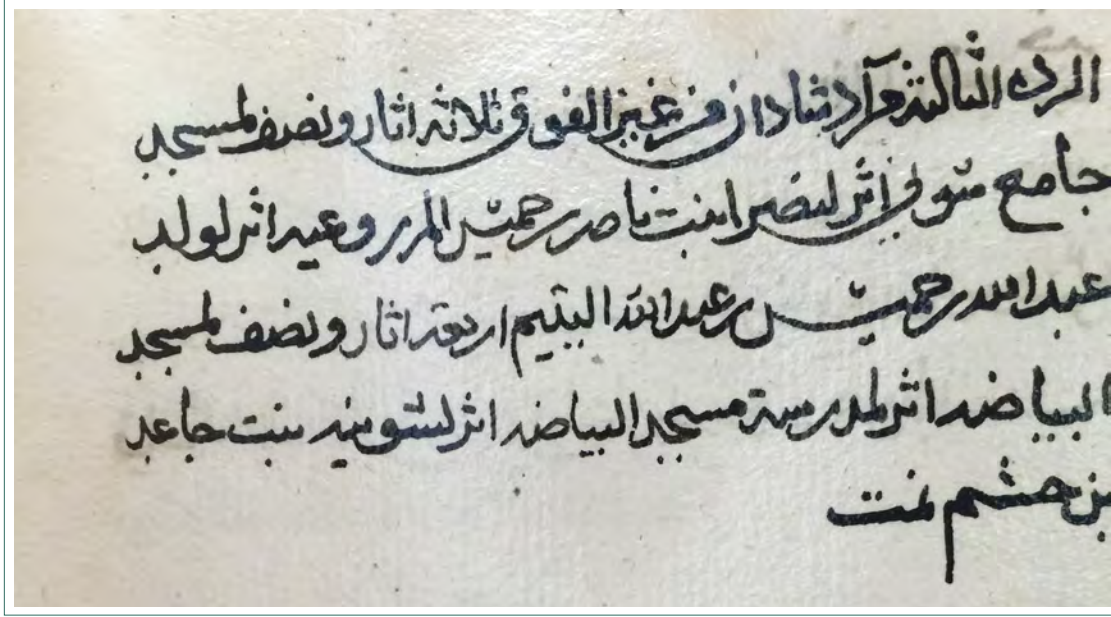 الرده الثالثة وآد شاذان من غيز الفوق ثلاثه اثار ونصف لمسجد
جامع متوفي اثر لنصرا بنت ناصر بن حميس المر بوعيه اثر لولد
عبدالله بن خميس بن عبدالله اليتيم اربعة اثار ونصف لمسجد
البياضه اثر لمدرسة مسجد البياضه اثر لشوينه بنت جاعد
بن خشم تمت